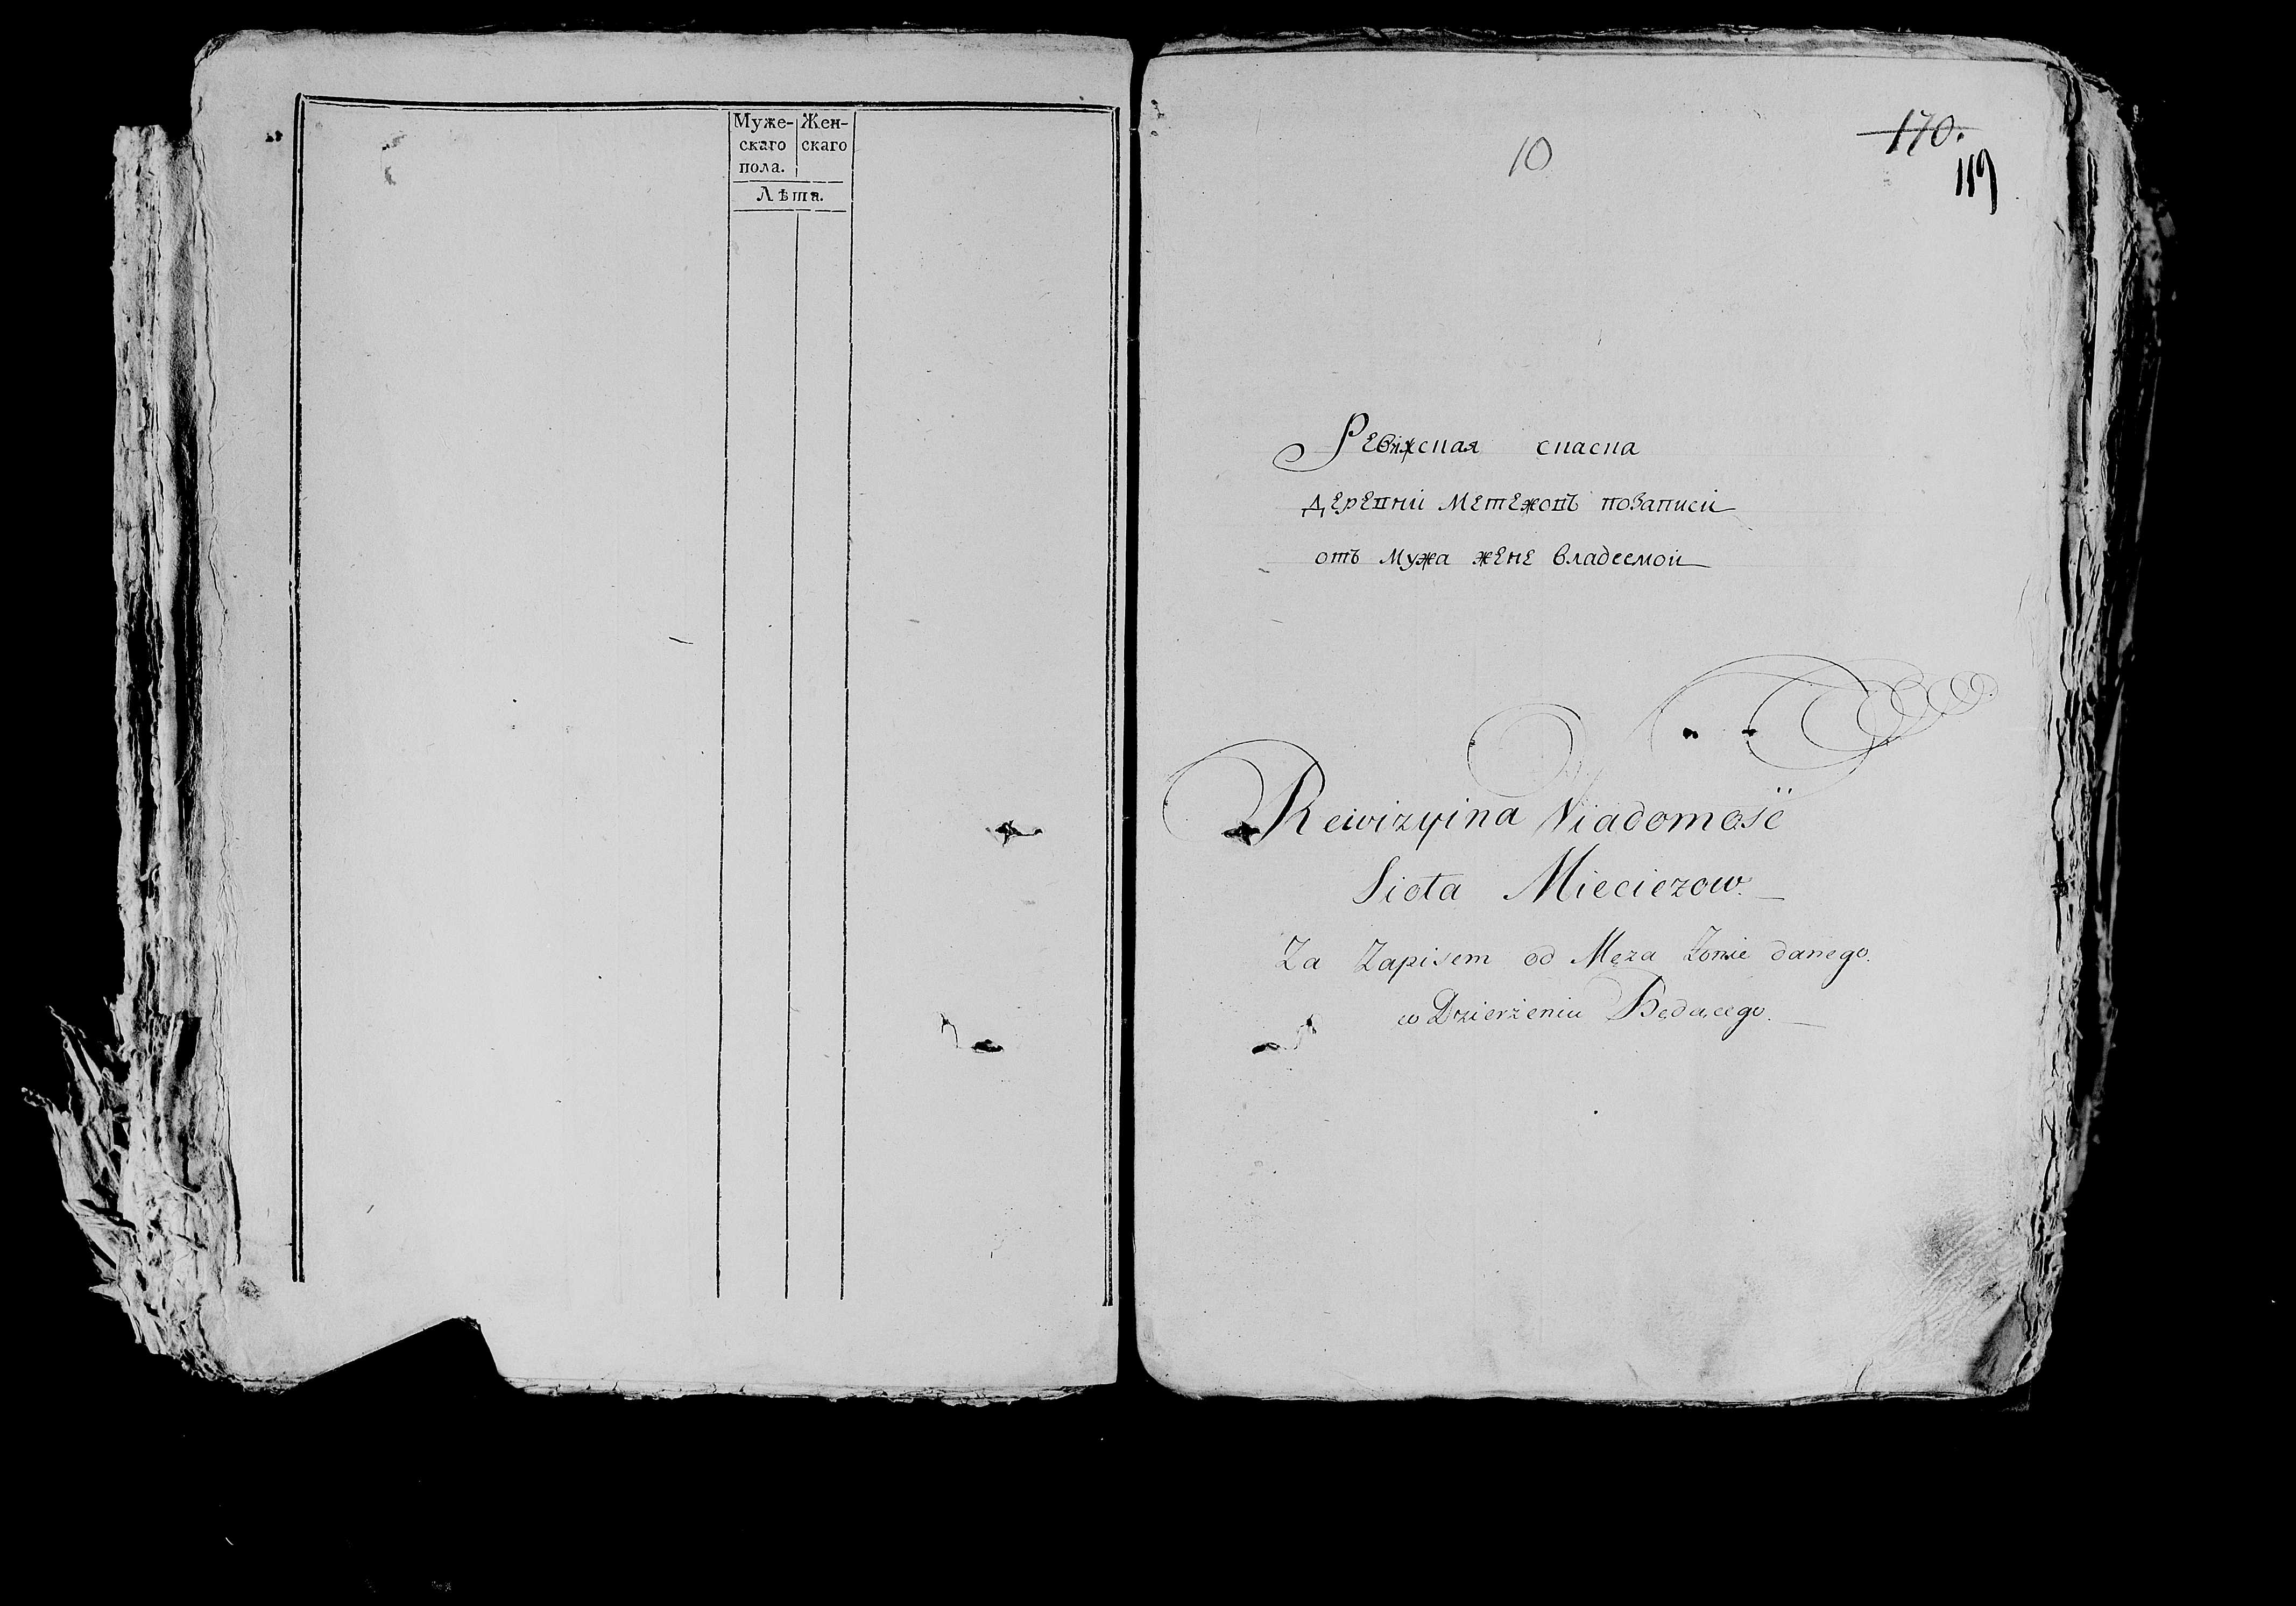 Муже- Жен-
скаго скаго
пола.
Лѣта.
10
170.
119
Ревижская спаска
деревни Метежовъ позаписи
отъ мужа жене владеемои
Rewizyina Wiadomość
Sioła Mieciezow.
Za Zapisem od Męża Żonie danego.
w Dzierżeniu Będącego.